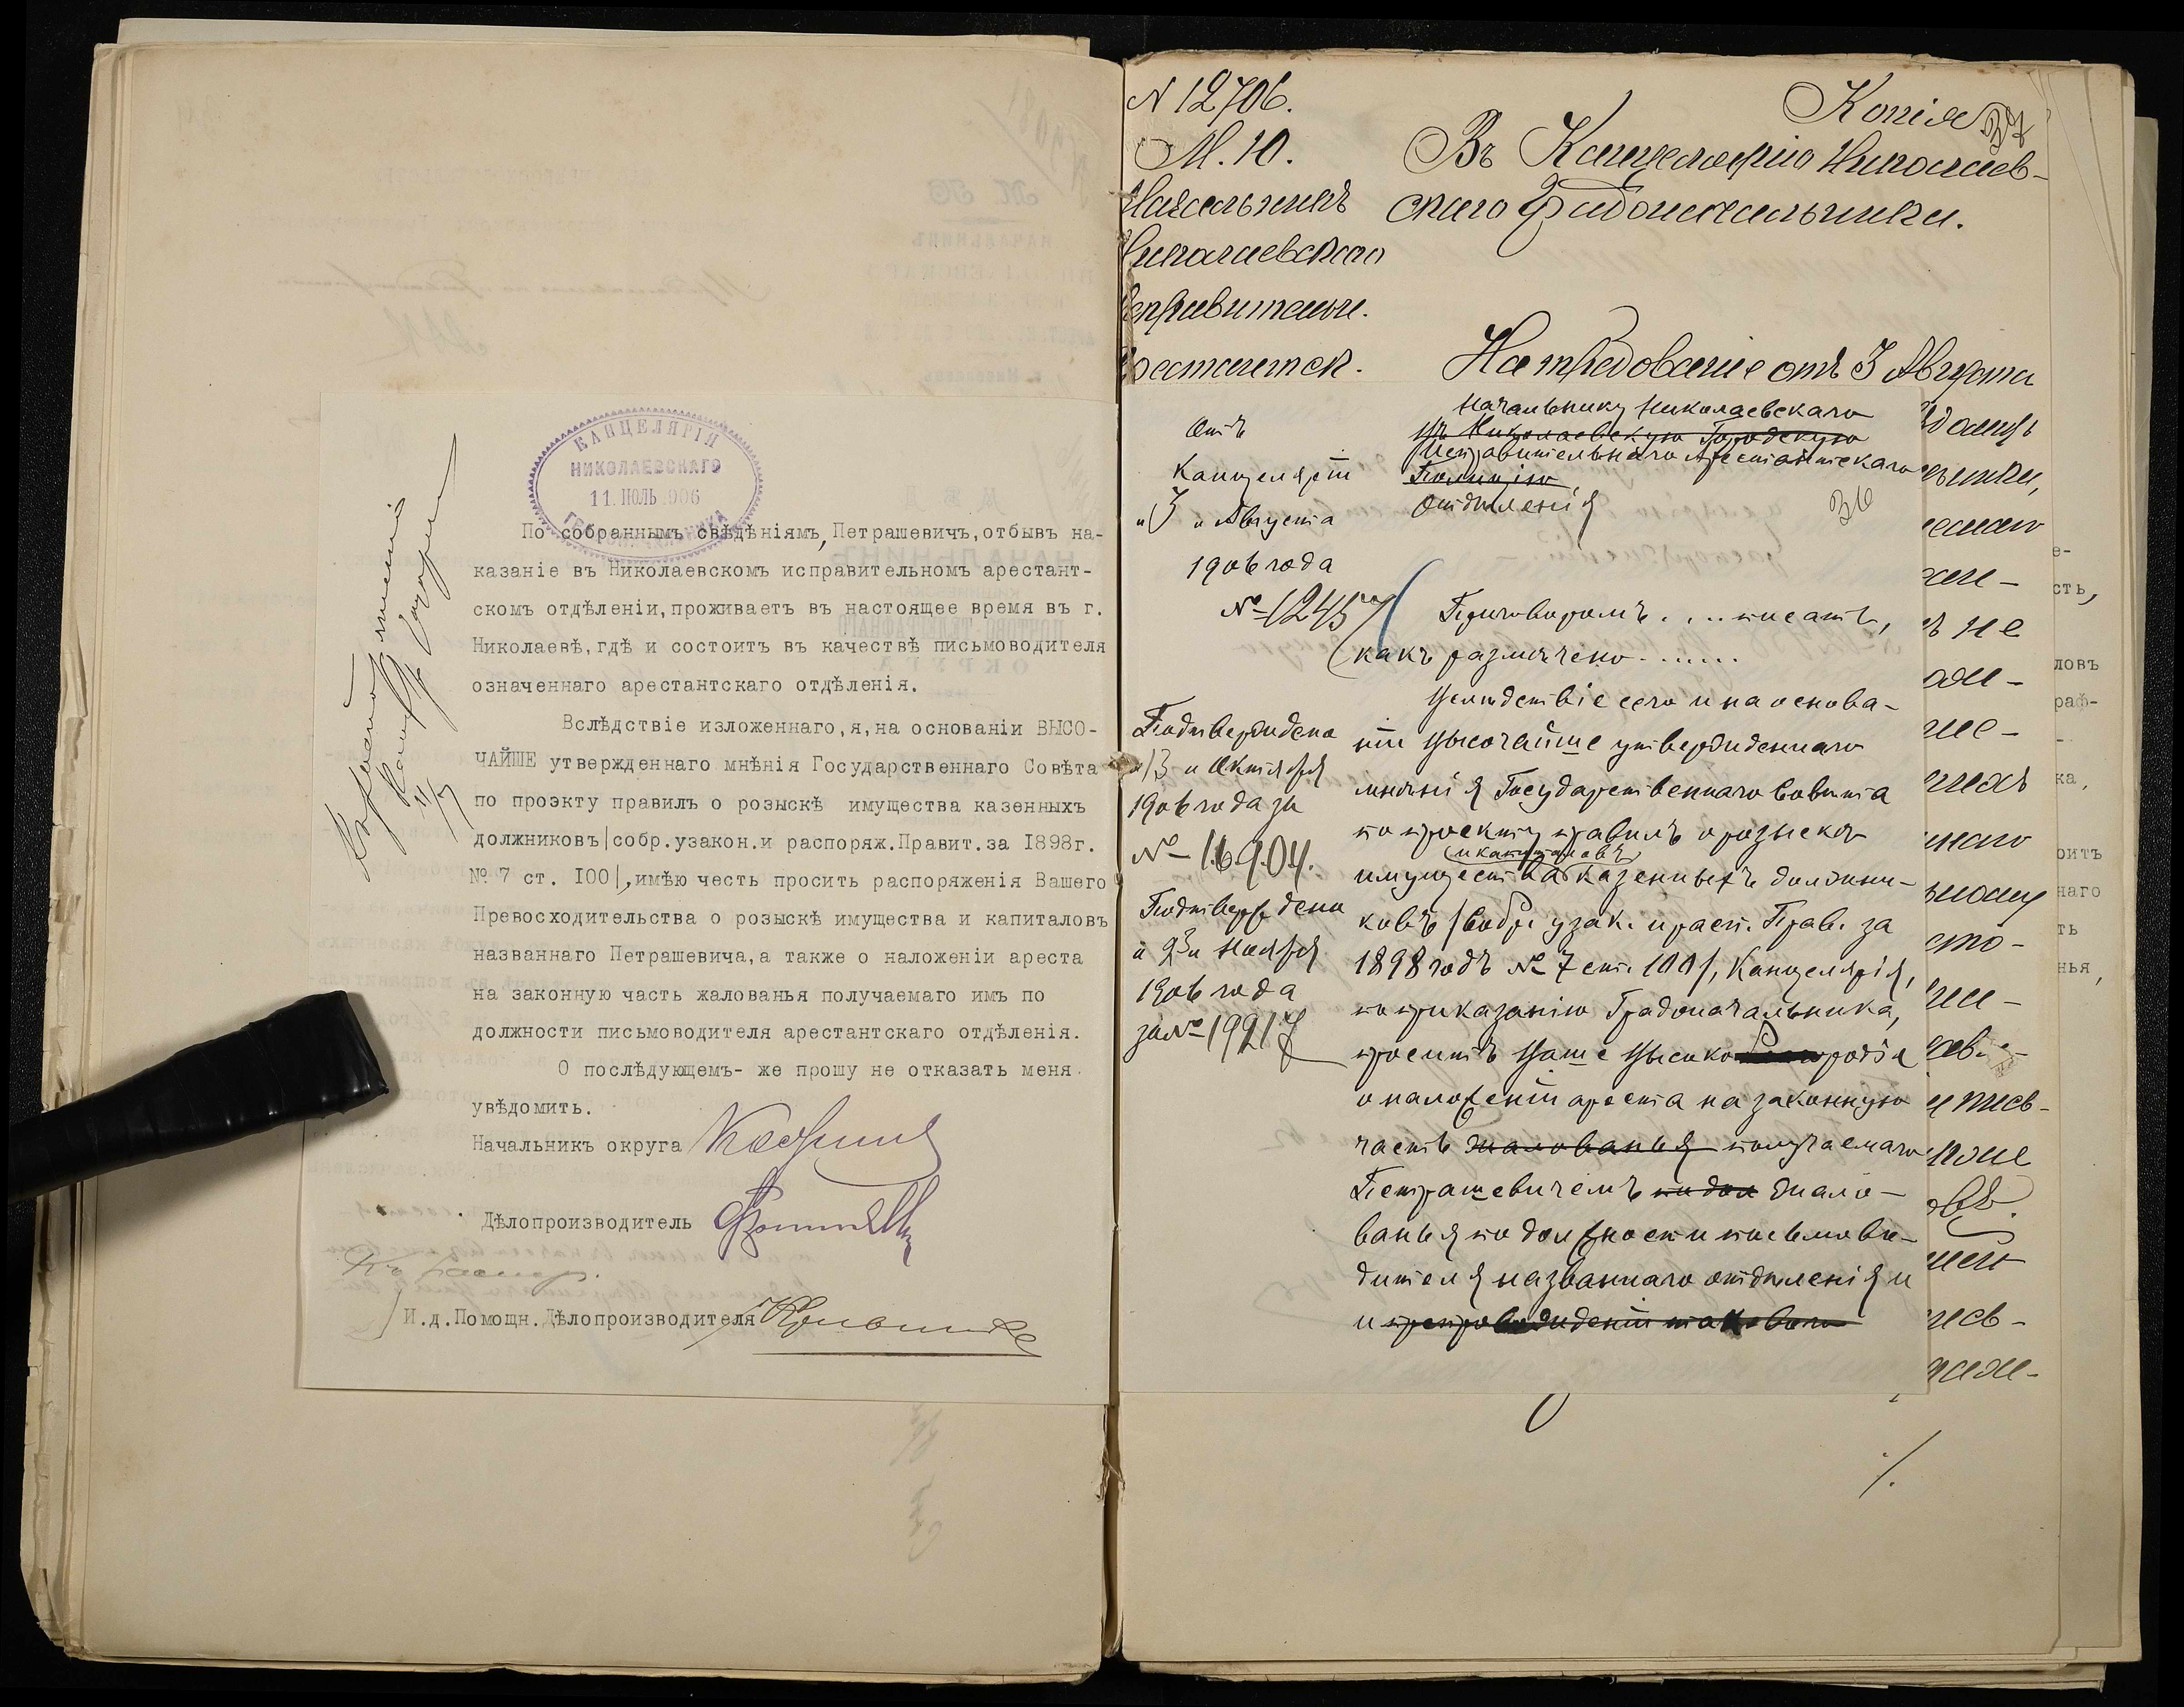 КАНЦЕЛЯРІЯ
НИКОЛАЕВСКАГО
11. ІЮЛЬ 1906
По собраннымъ свѣдѣніямъ, Петрашевичъ, отбывъ на-
казаніе въ Николаевскомъ исправительномъ арестант-
скомъ отдѣленіи, проживаетъ въ настоящее время въ г.
Николаевѣ, гдѣ и состоитъ въ качествѣ письмоводителя
означеннаго арестантскаго отдѣленія.
Вслѣдствіе изложеннаго, я, на основаніи ВЫСО-
ЧАЙШЕ утвержденнаго мнѣнія Государственнаго Совѣта
по проэкту правилъ о розыскѣ имущества казенныхъ
должниковъ/собр.узакон.и распоряж.Правит.за 1898г.
№ 7 ст. 100/, имѣю честь просить распоряженія Вашего
Превосходительства о розыскѣ имущества и капиталовъ
названнаго Петрашевича, а также о наложеніи ареста
на законную часть жалованья получаемаго имъ по
должности письмоводителя арестантскаго отдѣленія.
О послѣдующемъ- же прошу не отказать меня
увѣдомить.
Начальникъ округа
Дѣлопроизводитель
И.д.Помощн.Дѣлопроизводителя
N 12706.
М. 10.
Начальникъ
Николаевскаго
Исправительн.
Арестантск.
Копія
37
Въ Канцелярію Николаев-
скаго Градоначальника.
На требованіе отъ 3 Августа
Отъ
Канцеляріи
"3" Августа
1906 года
№ 12457
Начальнику Николаевскаго
Въ Николаевскую Городскую
Исправительнаго Арестантскаго
Полицію
Отдѣленія
36
Приговоромъ . . . . писать,
какъ размѣчено . . . . . . .
Вслѣдствіе сего и на основа-
ніи Высочайше утвержденнаго
мнѣнія Государственнаго Совѣта
по проекту правилъ о розыскѣ
и капиталовъ
имущества казенныхъ должни-
ковъ /Собр. узак. и расп. Прав. за
1898 годъ № 7 ст. 100/, Канцелярія,
по приказанію Градоначальника,
проситъ Ваше Высокородіе
о наложеніи ареста на законную
часть жалованья получаемаго
Петрашевичемъ по дол жало-
ванья по должности письмово-
дителя названнаго отдѣленія и
и препровожденіи таковаго
Подтверждено
"13" Октября
1906 года за
№ 16904.
Подтверждено
"23" Ноября
1906 года
за № 19917